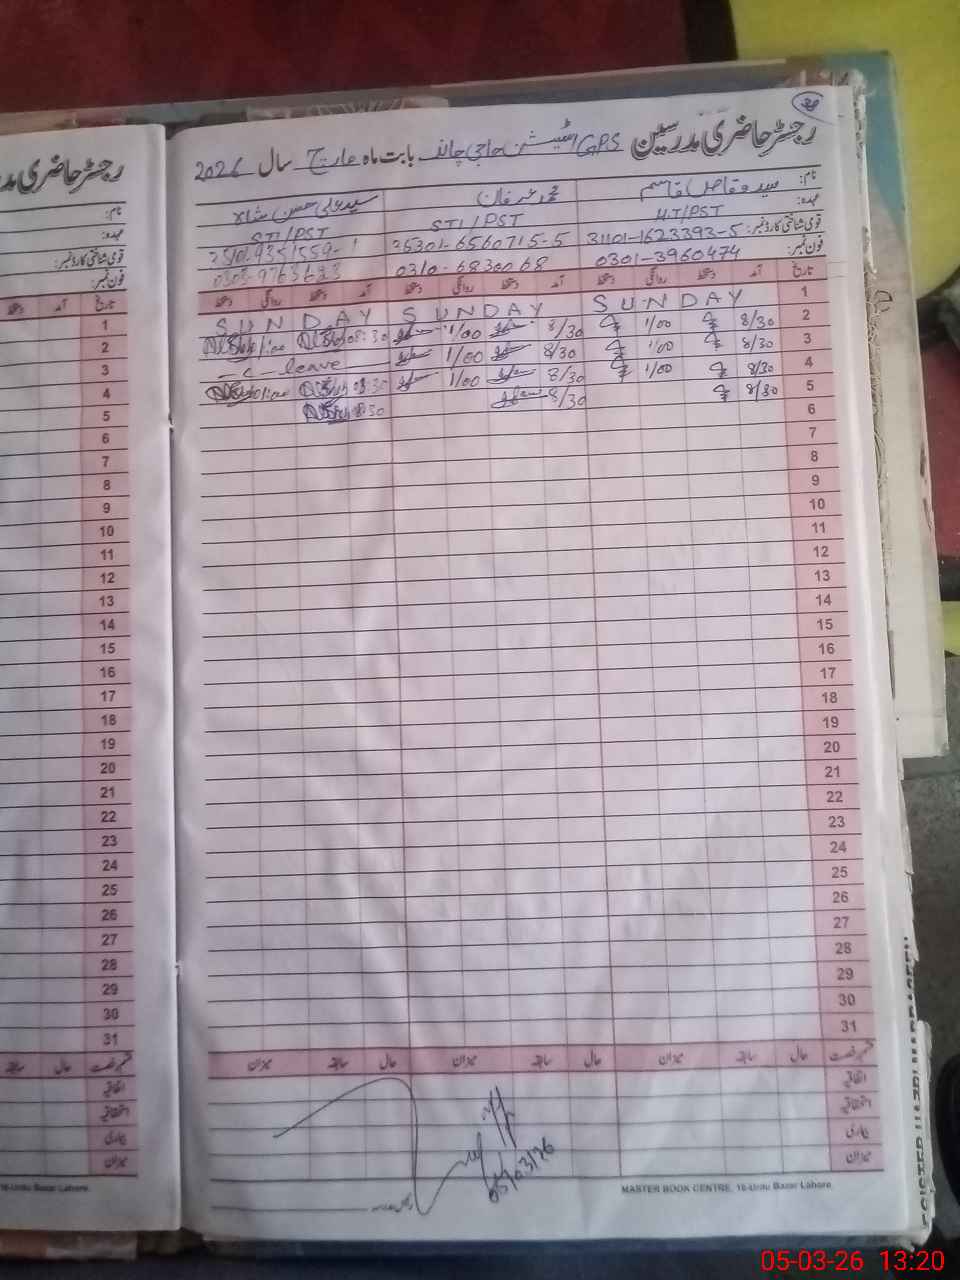 38
رجسٹر حاضری مدرسین GPS اسٹیشن حاجی چاند بابت ماہ مارچ سال 2026
نام: سید وقاص قاسم محمد عرفان سید علی حسن شاہ
عہدہ: H.T/PST STI/PST STI/PST
قومی شناختی کارڈ نمبر: 31101-1623393-5 35301-6560715-5
فون نمبر: 0301-3960474 0310-6830068 0303-9763623
تاریخ آمد دستخط روانگی دستخط آمد دستخط روانگی دستخط آمد دستخط روانگی دستخط
1 SUNDAY SUNDAY SUNDAY
2 8/30 1/00 8/30 1/00 08:30 1:00
3 8/30 1/00 8/30 1/00 - C - leave
4 8/30 1/00 8/30 1/00 8:30 1:00
5 8/30 8/30 8:30
6
7
8
9
10
11
12
13
14
15
16
17
18
19
20
21
22
23
24
25
26
27
28
29
30
31
قسم رخصت حال سابقہ میزان حال سابقہ میزان حال سابقہ میزان
اتفاقیہ
استحقاقیہ
بیماری
میزان
05/03/26
MASTER BOOK CENTRE, 16-Urdu Bazar Lahore.
رجسٹر حاضری مد
نام:
عہدہ:
قومی شناختی کارڈ نمبر:
فون نمبر:
تاریخ آمد دستخط
1
2
3
4
5
6
7
8
9
10
11
12
13
14
15
16
17
18
19
20
21
22
23
24
25
26
27
28
29
30
31
قسم رخصت حال سابقہ
اتفاقیہ
استحقاقیہ
بیماری
میزان
16-Urdu Bazar Lahore.
05-03-26 13:20